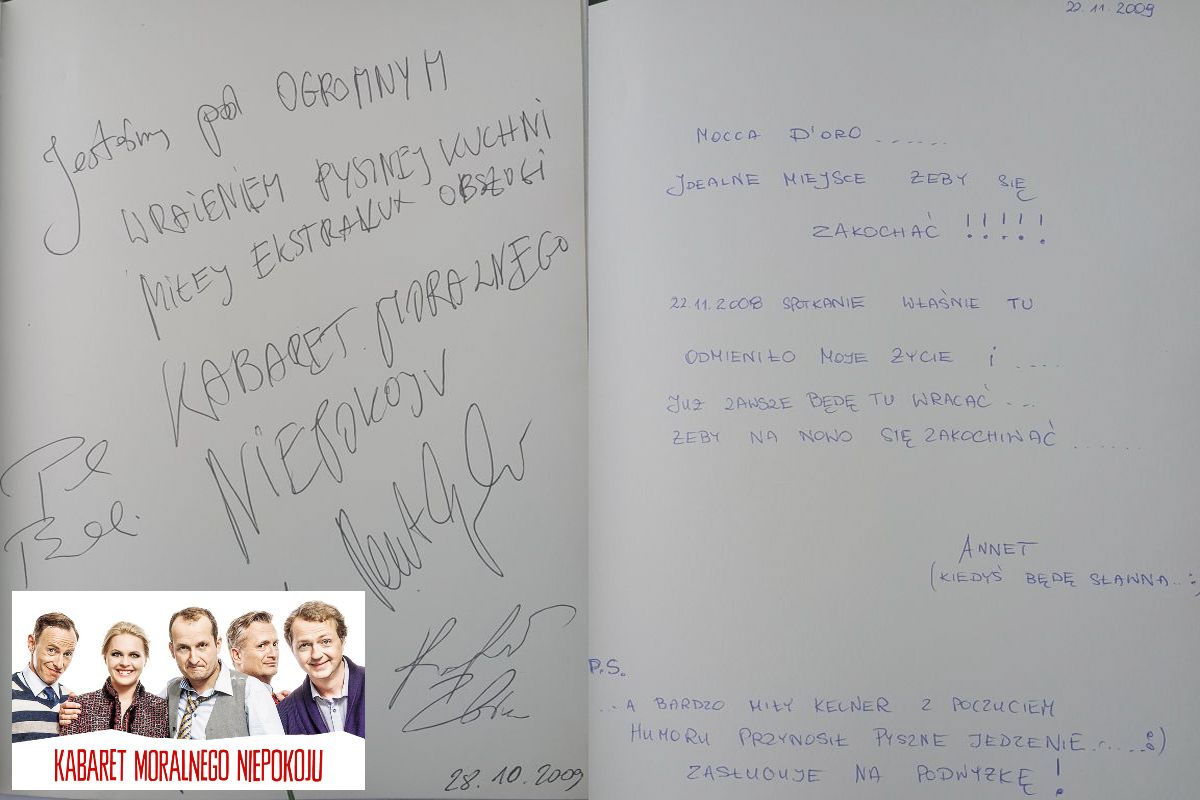 Jesteśmy pod OGROMNYM
WRAŻENIEM PYSZNEJ KUCHNI
MIŁEJ EKSTRA OBSŁUGI
KABARET MORALNEGO
NIEPOKOJU
28.10.2009
KABARET MORALNEGO NIEPOKOJU
22.11.2009
MOCCA D'ORO ......
IDEALNE MIEJSCE ŻEBY SIĘ
ZAKOCHAĆ !!!!!
22.11.2008 SPOTKANIE WŁAŚNIE TU
ODMIENIŁO MOJE ŻYCIE I ....
JUŻ ZAWSZE BĘDĘ TU WRACAĆ ...
ŻEBY NA NOWO SIĘ ZAKOCHIWAĆ ......
ANNET
(KIEDYŚ BĘDĘ SŁAWNA.. :)
P.S.
...A BARDZO MIŁY KELNER Z POCZUCIEM
HUMORU PRZYNOSIŁ PYSZNE JEDZENIE......:)
ZASŁUGUJE NA PODWYŻKĘ !